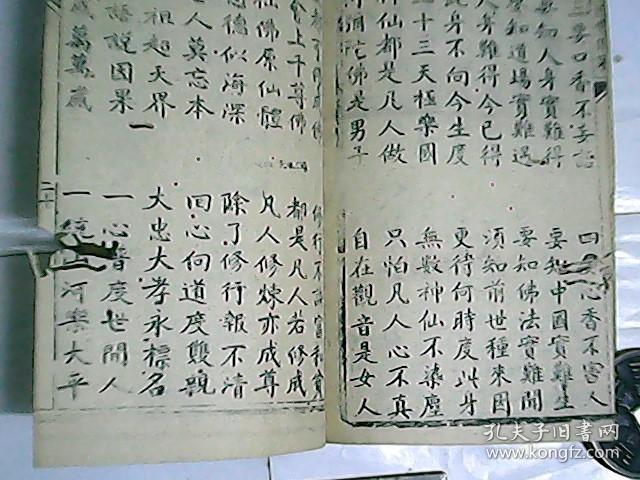 要口香不妄語 四要心香不害人
要知人身實難得 要知中國實難生
要知道場實難遇 要知佛法實難聞
人身難得今已得 須知前世種來因
此身不向今生度 更待何時度此身
三十三天極樂國 無數神仙不染塵
神仙都是凡人做 只怕凡人心不真
彌陀佛是男子 自在觀音是女人
修行不論富和貧
會上千尊佛 都是凡人若修成
仙佛原仙體 凡人修煉亦成尊
恩德似海深 除了修行報不清
人莫忘本 回心向道度雙親
祖超天界 大忠大孝永標名
語說因果 一心普度世間人
歲萬萬歲 一統山河樂大平
孔夫子旧书网
www.kongfz.com